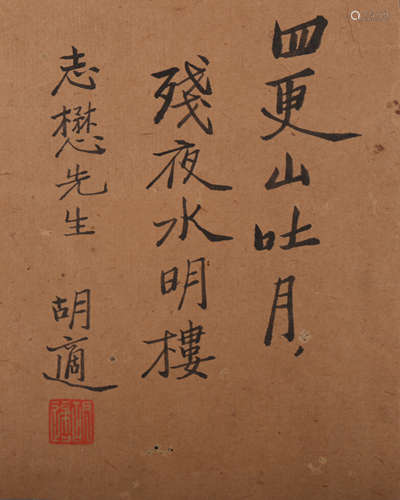 四更山吐月，
殘夜水明樓
志懋先生 胡適